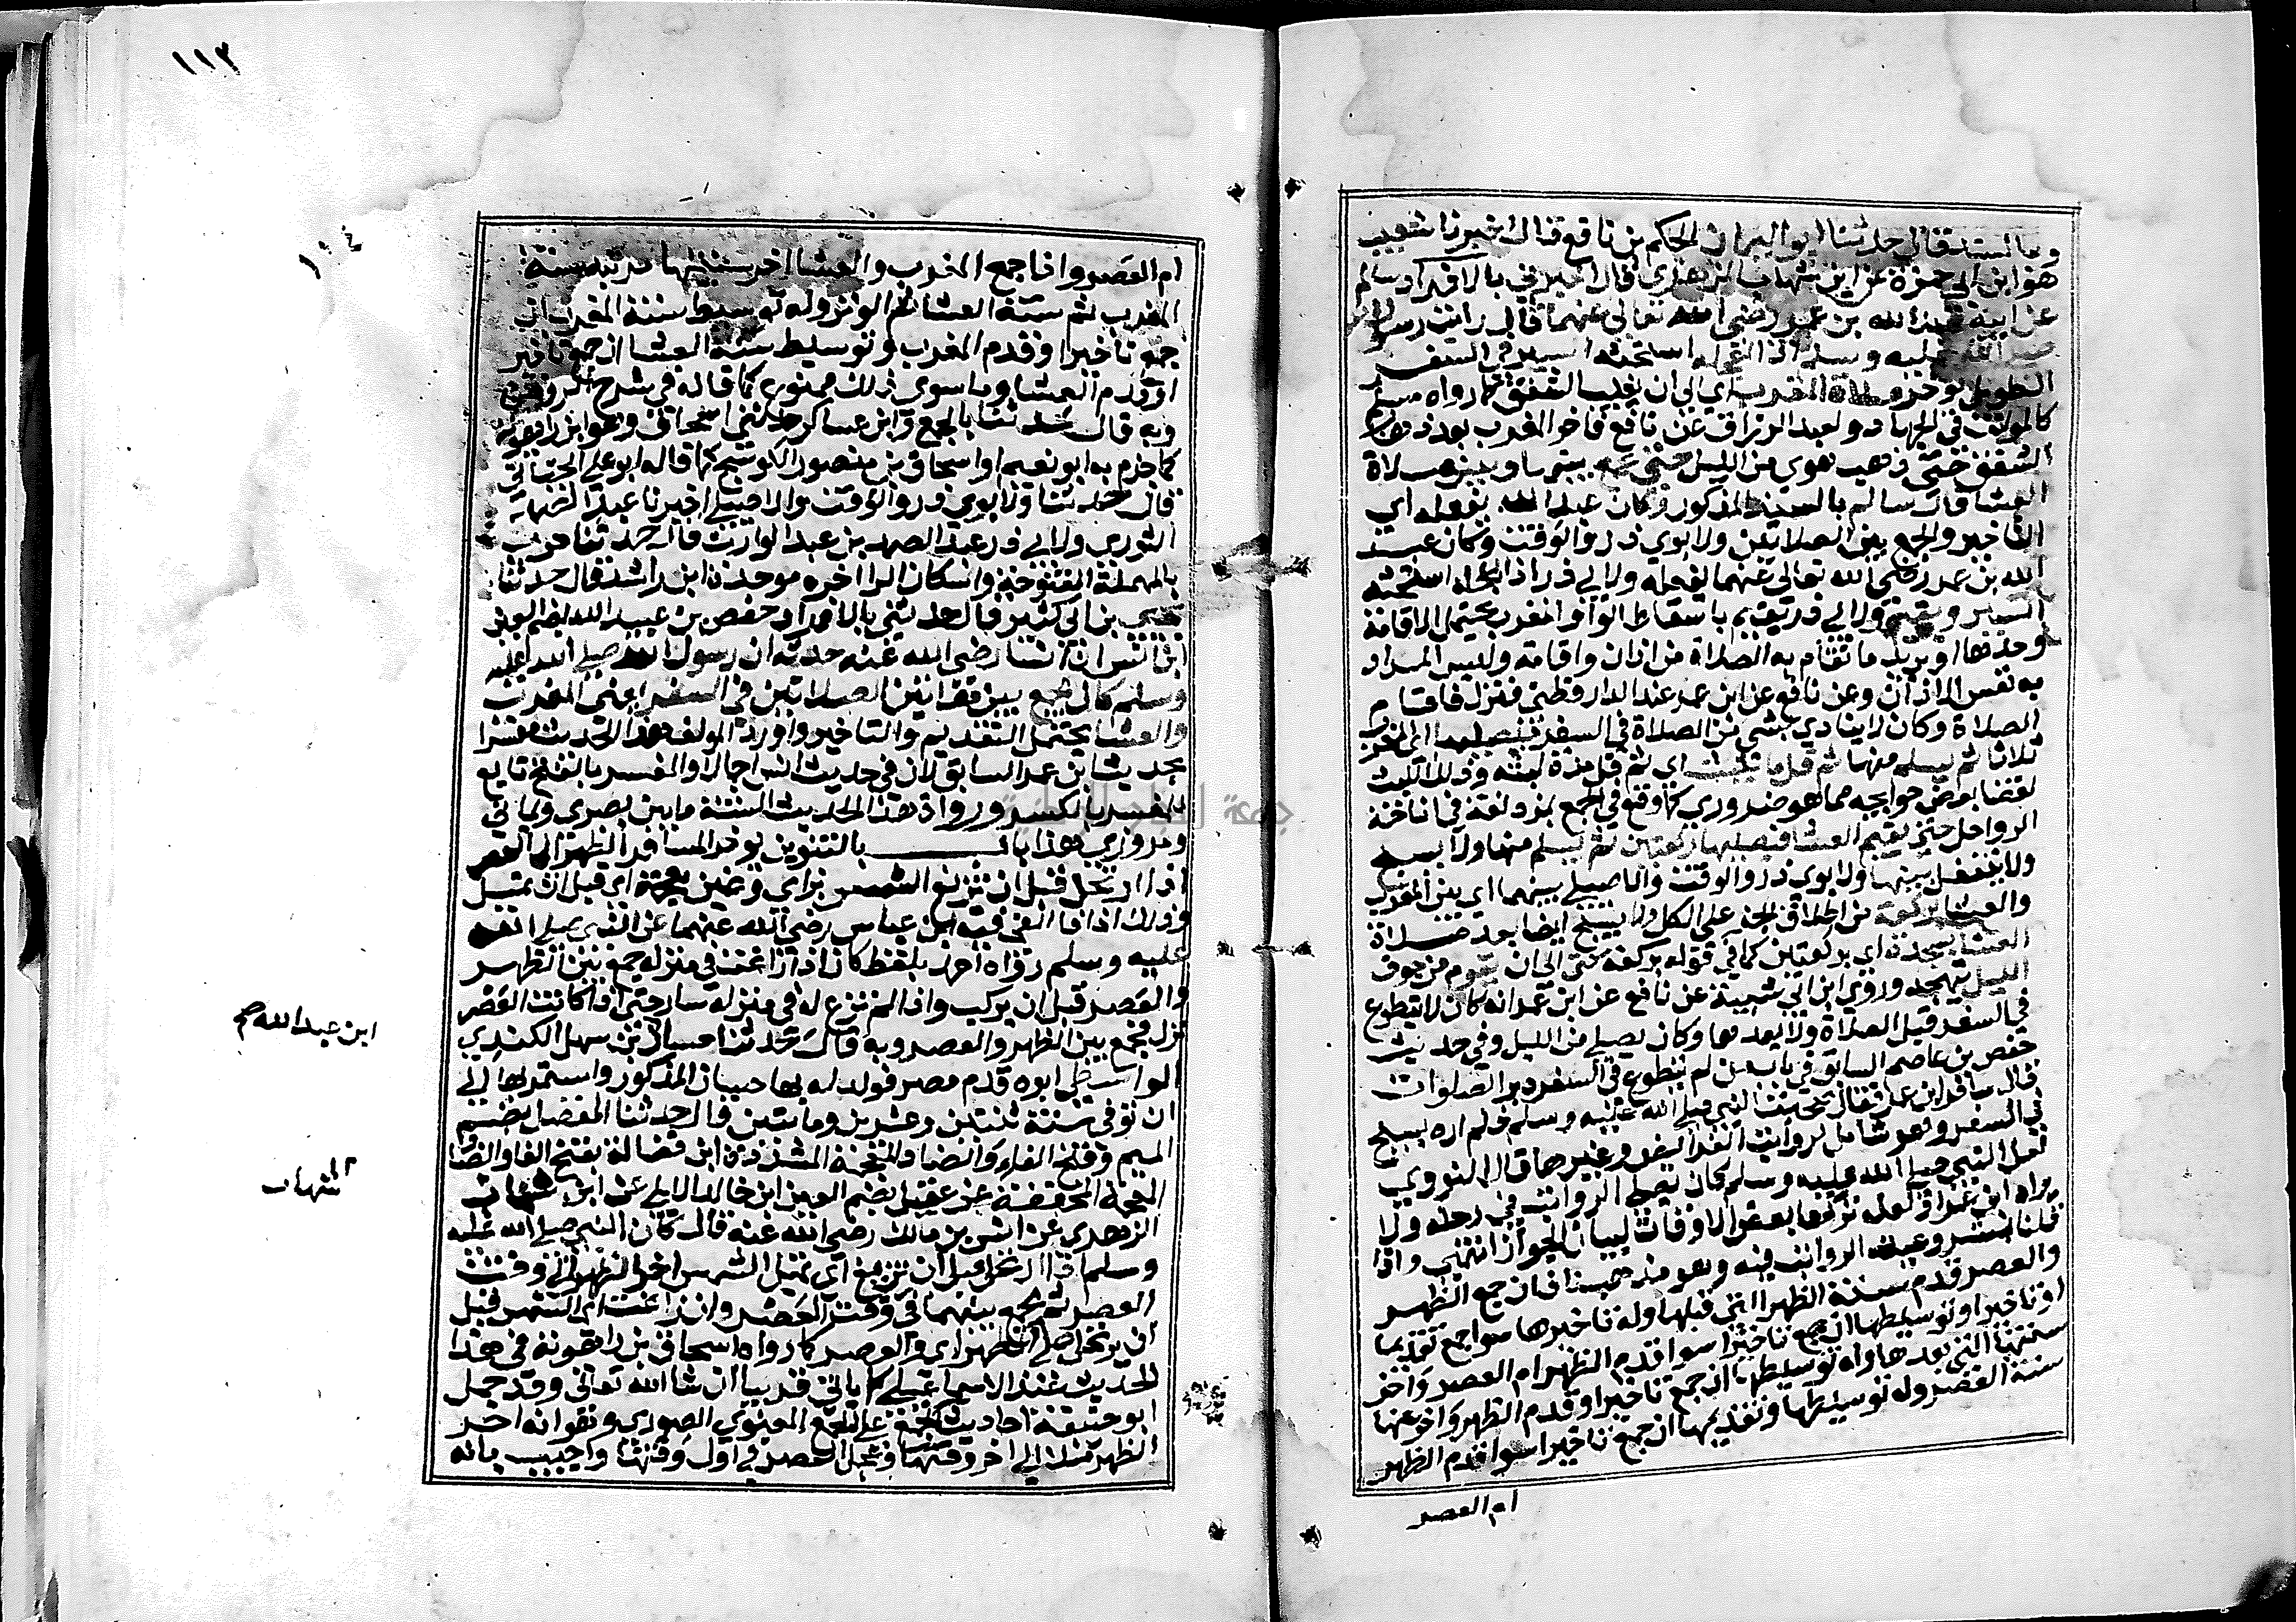 وبالسند قال حدثنا ابو اليمان الحكم بن نافع قال اخبرنا شعيب
هو ابن ابي حمزة عن ابن شهاب الزهري قال اخبرني بالافراد سالم
عن ابيه عبد الله بن عمر رضي الله تعالى عنهما قال رايت رسول الله
صلى الله عليه وسلم اذا اعجله استحثه السير في السفر
الطويل يوخر صلاة المغرب اي الى ان يغيب الشفق كما رواه مسلم
كالمولف في الجهاد ولعبد الرزاق عن نافع فاخر المغرب بعد ذهاب
الشفق حتى ذهب هوي من الليل حتى يجمع بينها وبين صلاة
العشا قال سالم بالسند المذكور وكان عبد الله يفعله اي
التاخير والجمع بين الصلاتين ولابوي ذر والوقت وكان عبد
الله بن عمر رضي الله تعالى عنهما يفعله ولابي ذر اذا اعجله استحثه
السير ويقيم ولابي ذر يقيم باسقاط الواو المغرب يحتمل الاقامة
وحدها او يريد ما تقام به الصلاة من اذان واقامة وليس المراد
به نفس الاذان وعن نافع عن ابن عمر عند الدارقطني فنزل فاقام
الصلاة وكان لا ينادي بشي من الصلاة في السفر فيصليها اي المغرب
ثلاثا ثم يسلم منها ثم قل ما يلبث اي ثم قل مدة لبثه وذلك اللبث
لقضا بعض حوايجه مما هو ضروري كما وقع في الجمع بمزدلفة في اناخة
الرواحل حتى يقيم العشا فيصليها ركعتين ثم يسلم منها ولا يسبح
ولا يتنفل بينها ولابوي ذر والوقت والاصيلي بينهما اي بين المغرب
والعشا بركعة من اطلاق الجز على الكل ولا يسبح ايضا بعد صلاة
العشا بسجدة اي بركعتين كما في قوله بركعة حتى الى ان يقوم من جوف
الليل يتهجد وروي ابن ابي شيبة عن نافع عن ابن عمر انه كان لا يتطوع
في السفر قبل الصلاة ولا بعدها وكان يصلي من الليل وفي حديث
حفص بن عاصم السابق في باب من لم يتطوع في السفر دبر الصلوات
قال سافر ابن عمر فقال صحبت النبي صلى الله عليه وسلم فلم اره يسبح
في السفر وهو شامل لرواتب الفرايض وغيرها قال النووي
لعل النبي صلى الله عليه وسلم كان يصلي الرواتب في رحله ولا
يراه ابن عمر او لعله تركها بعض الاوقات لبيان الجواز انتهى واذا
قلنا بمشروعية الرواتب فيه وهو مذهبنا فان جمع الظهر
والعصر قدم سنة الظهر التي قبلها وله تاخيرها سوا جمع تقديما
او تاخيرا وتوسيطها ان جمع تاخيرا سوا قدم الظهر ام العصر واخر
سنتها التي بعدها وله توسيطها ان جمع تاخيرا وقدم الظهر واخر عنها
سنة العصر وله توسيطها وتقديمها ان جمع تاخيرا سوا قدم الظهر
ام العصر
١١٢
ام العصر واذا جمع المغرب والعشا اخر سنتيهما مرتبة سنة
المغرب ثم سنة العشا ثم الوتر وله توسيط سنة المغرب ان
جمع تاخيرا وقدم المغرب وتوسيط سنة العشا ان جمع تاخيرا
وقدم العشا وما سوى ذلك ممنوع كما قاله في شرح الروض
وبه قال حدثنا بالجمع ولابن عساكر حدثني اسحاق وهو ابن راهويه
كما جزم به ابو نعيم او اسحاق بن منصور الكوسج كما قاله ابو علي الجياني
قال حدثنا ولابوي ذر والوقت والاصيلي اخبرنا عبد الصمد
التنوري ولابي ذر عبد الصمد بن عبد الوارث قال حدثنا حرب
بالمهملة المفتوحة واسكان الرا اخره موحدة ابن راشد قال حدثنا
يحيى بن ابي كثير قال حدثني بالافراد حفص بن عبيد الله بضم العين
ابن انس ان انسا رضي الله عنه حدثه ان رسول الله صلى الله عليه
وسلم كان يجمع بين هاتين الصلاتين في السفر يعني المغرب
والعشا يحتمل التقديم والتاخير واورد المولف هذا الحديث مفسرا
بحديث ابن عمر السابق لان في حديث انس اجمالا والمفسر بالفتح تابع
للمفسر بالكسر ورواة هذا الحديث الستة ما بين بصري ويماني
ومروزي هذا باب بالتنوين يوخر المسافر الظهر الى العصر
اذا ارتحل قبل ان تزيغ الشمس بزاي وغين معجمة اي قبل ان تميل
وذلك اذا فا الفي فيه ابن عباس رضي الله عنهما عن النبي صلى الله
عليه وسلم رواه احمد بلفظ كان اذا زاغت في منزله جمع بين الظهر
والعصر قبل ان يركب واذا لم تزغ له في منزله سار حتى اذا كانت العصر
نزل فجمع بين الظهر والعصر وبه قال حدثنا حسان بن سهل الكندي
ابن عبد الله صح
الواسطي ابوه قدم مصر فولد له بها حسان المذكور واستمر بها الى
ان توفي سنة ثنتين وعشرين ومايتين قال حدثنا المفضل بضم
الميم وفتح الفاء والضاد المعجمة المشددة ابن فضالة بفتح الفا والضاد
المعجمة المخففة عن عقيل بضم العين ابن خالد الايلي عن ابن شهاب
شهاب
الزهري عن انس بن مالك رضي الله عنه قال كان النبي صلى الله عليه
وسلم اذا ارتحل قبل ان تزيغ اي تميل الشمس اخر الظهر الى وقت
العصر ثم يجمع بينهما في وقت العصر واذا زاغت اي الشمس قبل
ان يرتحل صلى الظهر اي والعصر كما رواه اسحاق بن راهويه في هذا
الحديث عند الاسماعيلي كما ياتي قريبا ان شا الله تعالى وقد حمل
ابو حنيفة احاديث الجمع على الجمع المعنوي الصوري وهو انه اخر
الظهر مثلا الى اخر وقتها وعجل العصر في اول وقتها واجيب بانه